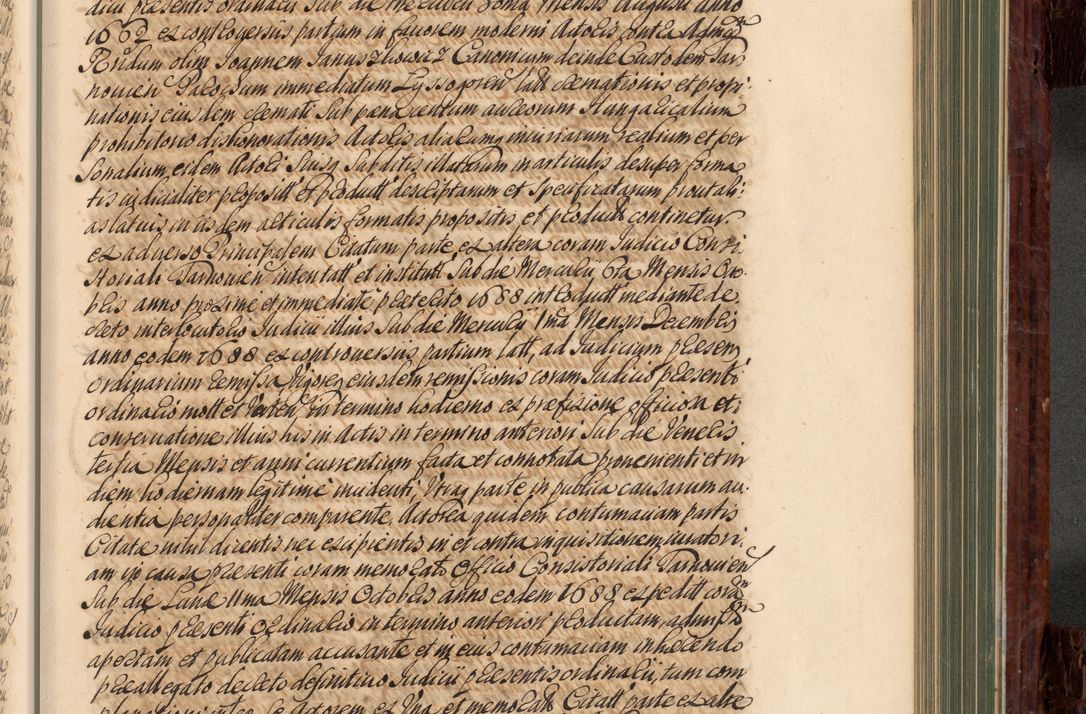 dicii præsentis ordinarii sub die Mercurii Mensis Augusti anno
1662 ex controversiis partium in favorem moderni Actoris contra Admodum
Rndum olim Joannem Canonicum deinde Custodem Tar
novien immediatum Lyssogorien latt et propi
nationis eiusdem sub pæna centum aureorum Hungaricalium
prohibitorio dishonorationis Actoris aliarumq iniuriarum realium et per
sonalium, eidem Actori suisq subditis illatarum in articulis desuper forma
tis iudicialiter propositt et productt descriptarum et specificatarum prout ali:
as latius in iisdem articulis formatis propositis et productt continetur
ex adverso Principalem Citatum parte, ex altera coram Judicio Consi
storiali Tarnovien intentatt et institutt sub die Mercurii 6ta Mensis Octo
bris anno proxime et immediate præterito 1688 introductt mediante de
creto interlocutorio Judicii illius sub die Mercurii 1ma Mensis Decembris
anno eodem 1688 ex controversiis partium latt, ad Judicium præsens
ordinarium remissa, vigore eiusdem remissionis coram Judicio præsenti
ordinario mott et verten in termino hodierno ex præfixione officiosa et
conservatione illius his in Actis in termino anteriori sub die Veneris
tertia Mensis et anni currentium facta et connotata provenienti et in
diem hodiernam legitime incidenti, Utraq parte in publica causarum au
dientia personaliter comparente, Actorea quidem contumaciam partis
Citatæ nihil dicentis nec excipientis in et contra inquisitionem iuratori
am in causa præsenti coram memorato Officio Consistoriali Tarnovien
sub die Lunæ 11ma Mensis Octobris anno eodem 1688 expeditt coram
Judicio præsenti ordinario in termino anteriori productam, admissam
apertam et publicatam accusante et in eius contumaciam inhærendo
præallegato decreto definitivo Judicii præsentis ordinarii, tum com
Actorem ex una, et memoratt Citatt parte ex alte